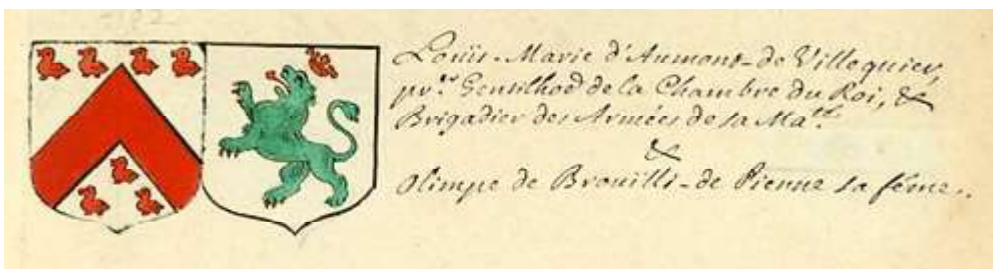 Louïs-Marie d'Aumont-de Villequier,
pr.er Gentilhoe de la Chambre du Roi, &
Brigadier des Armées de sa Ma.té
&
Olimpe de Brouilli-de Pienne sa féme.